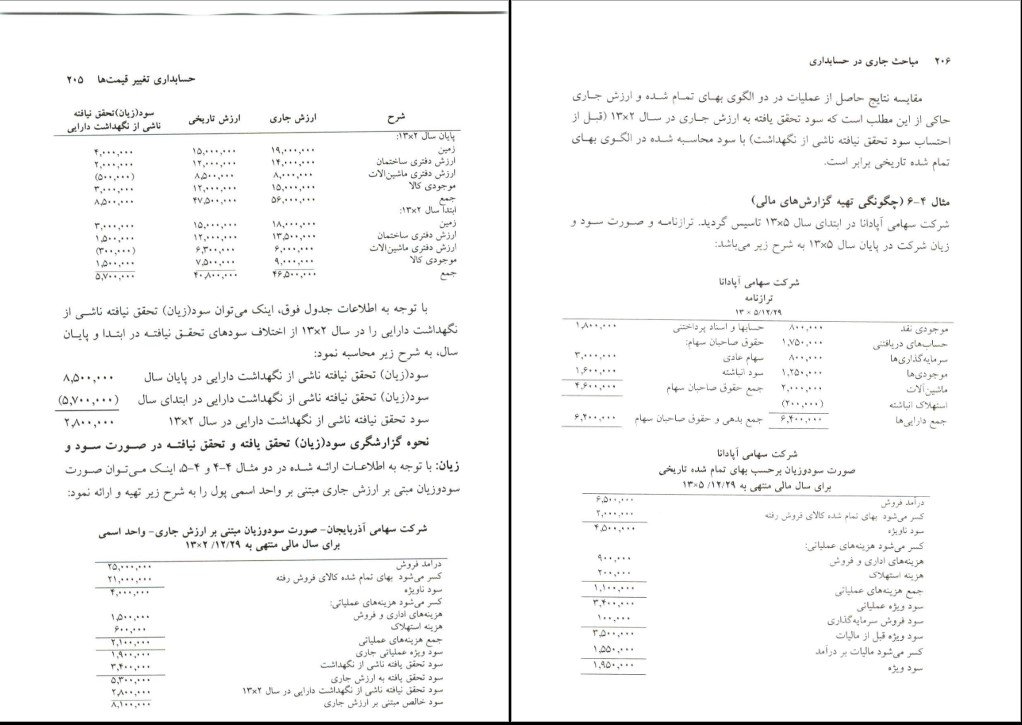 حسابداری تغییر قیمت‌ها ۲۰۵
شرح ارزش جاری ارزش تاریخی سود(زیان)تحقق نیافته ناشی از نگهداشت دارایی
پایان سال ۱۳×۲:
زمین ۱۹,۰۰۰,۰۰۰ ۱۵,۰۰۰,۰۰۰ ۴,۰۰۰,۰۰۰
ارزش دفتری ساختمان ۱۴,۰۰۰,۰۰۰ ۱۲,۰۰۰,۰۰۰ ۲,۰۰۰,۰۰۰
ارزش دفتری ماشین‌آلات ۸,۰۰۰,۰۰۰ ۸,۵۰۰,۰۰۰ (۵۰۰,۰۰۰)
موجودی کالا ۱۵,۰۰۰,۰۰۰ ۱۲,۰۰۰,۰۰۰ ۳,۰۰۰,۰۰۰
جمع ۵۶,۰۰۰,۰۰۰ ۴۷,۵۰۰,۰۰۰ ۸,۵۰۰,۰۰۰
ابتدا سال ۱۳×۲:
زمین ۱۸,۰۰۰,۰۰۰ ۱۵,۰۰۰,۰۰۰ ۳,۰۰۰,۰۰۰
ارزش دفتری ساختمان ۱۳,۵۰۰,۰۰۰ ۱۲,۰۰۰,۰۰۰ ۱,۵۰۰,۰۰۰
ارزش دفتری ماشین‌آلات ۶,۰۰۰,۰۰۰ ۶,۳۰۰,۰۰۰ (۳۰۰,۰۰۰)
موجودی کالا ۹,۰۰۰,۰۰۰ ۷,۵۰۰,۰۰۰ ۱,۵۰۰,۰۰۰
جمع ۴۶,۵۰۰,۰۰۰ ۴۰,۸۰۰,۰۰۰ ۵,۷۰۰,۰۰۰
با توجه به اطلاعات جدول فوق، اینک می‌توان سود(زیان) تحقق نیافته ناشی از
نگهداشت دارایی را در سال ۱۳×۲ از اختلاف سودهای تحقق نیافته در ابتدا و پایان
سال، به شرح زیر محاسبه نمود:
سود(زیان) تحقق نیافته ناشی از نگهداشت دارایی در پایان سال ۸,۵۰۰,۰۰۰
سود(زیان) تحقق نیافته ناشی از نگهداشت دارایی در ابتدای سال (۵,۷۰۰,۰۰۰)
سود تحقق نیافته ناشی از نگهداشت دارایی در سال ۱۳×۲ ۲,۸۰۰,۰۰۰
نحوه گزارشگری سود(زیان) تحقق یافته و تحقق نیافته در صورت سود و
زیان: با توجه به اطلاعات ارائه شده در دو مثال ۴-۴ و ۴-۵، اینک می‌توان صورت
سودوزیان مبتی بر ارزش جاری مبتنی بر واحد اسمی پول را به شرح زیر تهیه و ارائه نمود:
شرکت سهامی آذربایجان- صورت سودوزیان مبتنی بر ارزش جاری- واحد اسمی
برای سال مالی منتهی به ۱۳×۲/۱۲/۲۹
درآمد فروش ۲۵,۰۰۰,۰۰۰
کسر می‌شود بهای تمام شده کالای فروش رفته ۲۱,۰۰۰,۰۰۰
سود ناویژه ۴,۰۰۰,۰۰۰
کسر می‌شود هزینه‌های عملیاتی:
هزینه‌های اداری و فروش ۱,۵۰۰,۰۰۰
هزینه استهلاک ۶۰۰,۰۰۰
جمع هزینه‌های عملیاتی ۲,۱۰۰,۰۰۰
سود ویژه عملیاتی جاری ۱,۹۰۰,۰۰۰
سود تحقق یافته ناشی از نگهداشت ۳,۴۰۰,۰۰۰
سود تحقق یافته به ارزش جاری ۵,۳۰۰,۰۰۰
سود تحقق نیافته ناشی از نگهداشت دارایی در سال ۱۳×۲ ۲,۸۰۰,۰۰۰
سود خالص مبتنی بر ارزش جاری ۸,۱۰۰,۰۰۰
۲۰۶ مباحث جاری در حسابداری
مقایسه نتایج حاصل از عملیات در دو الگوی بهای تمام شده و ارزش جاری
حاکی از این مطلب است که سود تحقق یافته به ارزش جاری در سال ۱۳×۲ (قبل از
احتساب سود تحقق نیافته ناشی از نگهداشت) با سود محاسبه شده در الگوی بهای
تمام شده تاریخی برابر است.
مثال ۴-۶ (چگونگی تهیه گزارش‌های مالی)
شرکت سهامی آپادانا در ابتدای سال ۱۳×۵ تاسیس گردید. ترازنامه و صورت سود و
زیان شرکت در پایان سال ۱۳×۵ به شرح زیر می‌باشد:
شرکت سهامی آپادانا
ترازنامه
۱۳×۵/۱۲/۲۹
موجودی نقد ۸۰۰,۰۰۰ حسابها و اسناد پرداختنی ۱,۸۰۰,۰۰۰
حساب‌های دریافتنی ۱,۷۵۰,۰۰۰ حقوق صاحبان سهام:
سرمایه‌گذاری‌ها ۸۰۰,۰۰۰ سهام عادی ۳,۰۰۰,۰۰۰
موجودی‌ها ۱,۲۵۰,۰۰۰ سود انباشته ۱,۶۰۰,۰۰۰
ماشین‌آلات ۲,۰۰۰,۰۰۰ جمع حقوق صاحبان سهام ۴,۶۰۰,۰۰۰
استهلاک انباشته (۲۰۰,۰۰۰)
جمع دارایی‌ها ۶,۴۰۰,۰۰۰ جمع بدهی و حقوق صاحبان سهام ۶,۴۰۰,۰۰۰
شرکت سهامی آپادانا
صورت سودوزیان برحسب بهای تمام شده تاریخی
برای سال مالی منتهی به ۱۳×۵/۱۲/۲۹
درآمد فروش ۶,۵۰۰,۰۰۰
کسر می‌شود بهای تمام شده کالای فروش رفته ۲,۰۰۰,۰۰۰
سود ناویژه ۴,۵۰۰,۰۰۰
کسر می‌شود هزینه‌های عملیاتی:
هزینه‌های اداری و فروش ۹۰۰,۰۰۰
هزینه استهلاک ۲۰۰,۰۰۰
جمع هزینه‌های عملیاتی ۱,۱۰۰,۰۰۰
سود ویژه عملیاتی ۳,۴۰۰,۰۰۰
سود فروش سرمایه‌گذاری ۱۰۰,۰۰۰
سود ویژه قبل از مالیات ۳,۵۰۰,۰۰۰
کسر می‌شود مالیات بر درآمد ۱,۵۵۰,۰۰۰
سود ویژه ۱,۹۵۰,۰۰۰